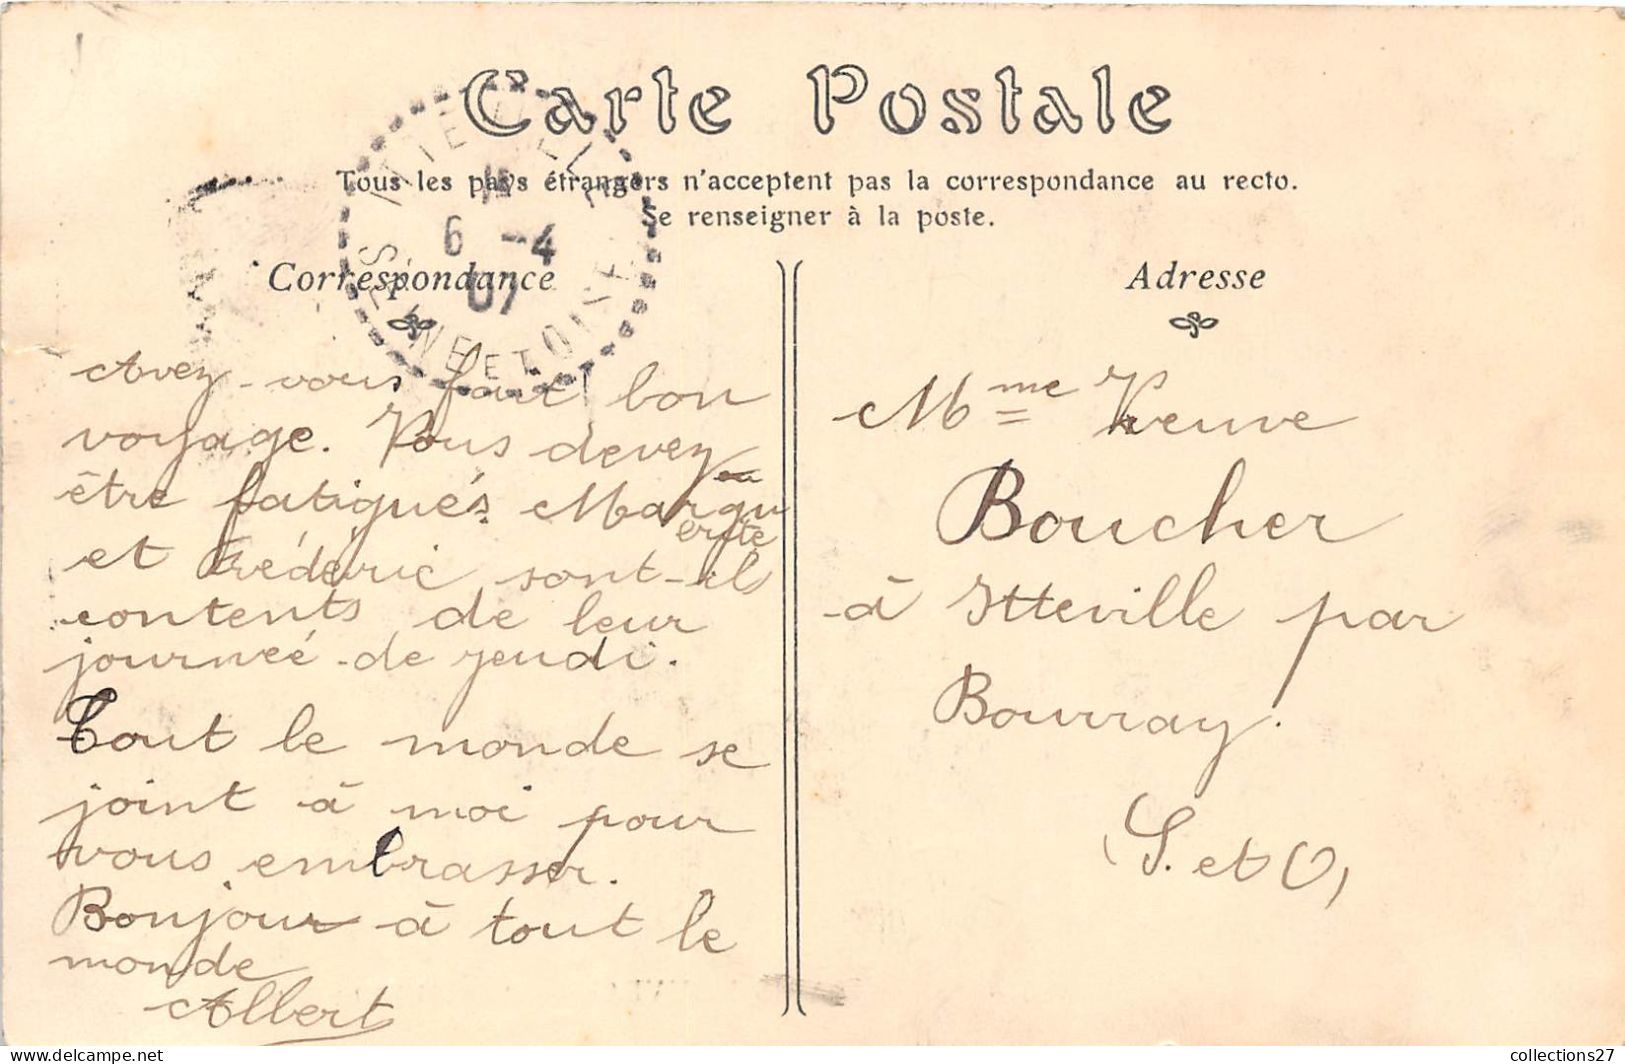 Carte Postale
Tous les pays étrangers n'acceptent pas la correspondance au recto.
Se renseigner à la poste.
ITTEVILLE
6 -4
07
SEINE ET OISE
Correspondance
Avez-vous fait bon
voyage. Vous devez
être fatigués. Margu
erite
et Frédéric sont-ils
contents de leur
journeé de jeudi.
Tout le monde se
joint à moi pour
vous embrasser.
Bonjour à tout le
monde
Albert
Adresse
Mme Veuve
Boucher
à Itteville par
Bourray.
(S. et O)
collections27